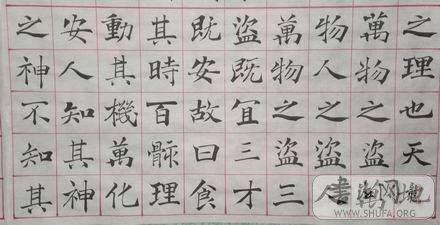 之理也天地
萬物之盜
物人之盜人
萬物之盜三
盜既宜三才
既安故曰食
其時百骸理
動其機萬化
安人知其神
之神不知其
WWW.SHUFA.ORG